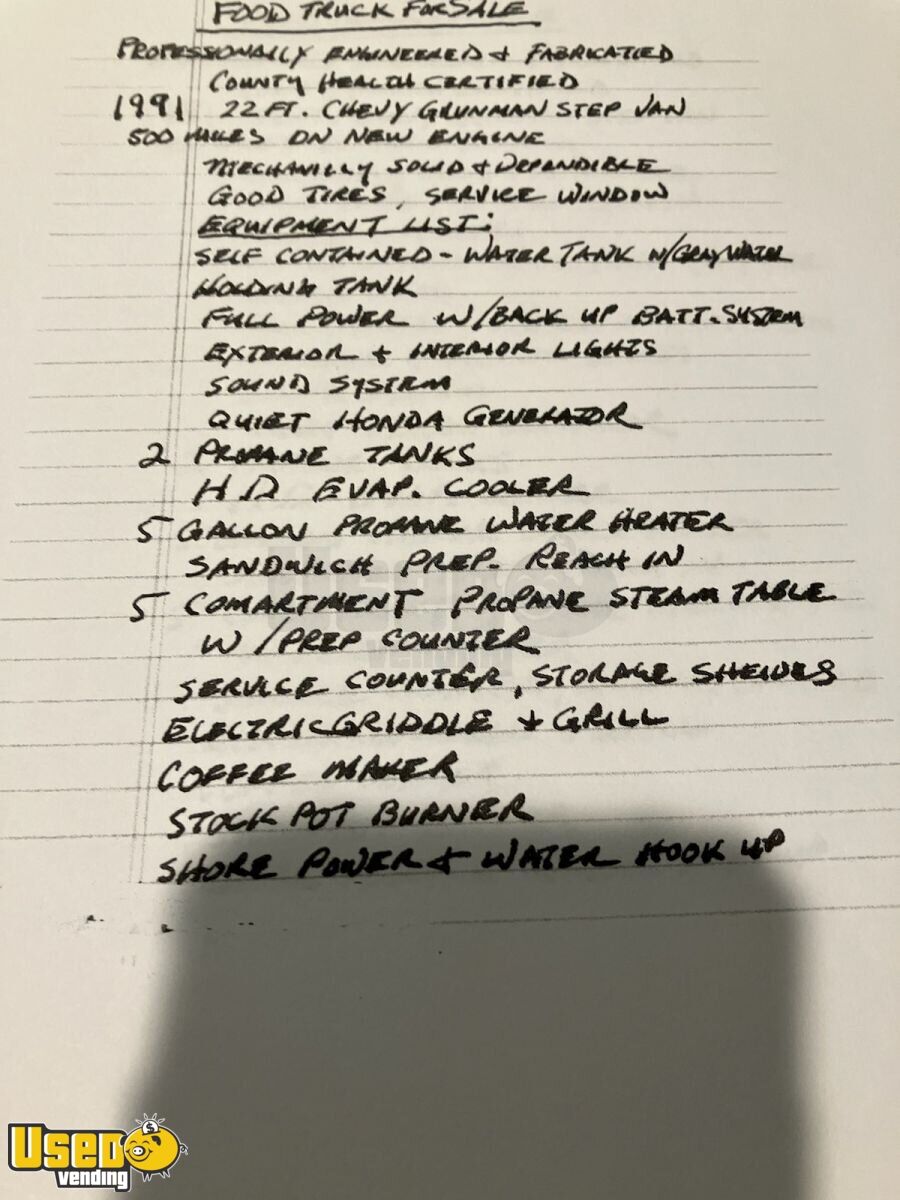 FOOD TRUCK FOR SALE
PROFESSIONALLY ENGINEERED & FABRICATIED
COUNTY HEALTH CERTIFIED
1991 22 FT. CHEVY GRUNMAN STEP VAN
500 MILES ON NEW ENGINE
MECHANILLY SOLID & DEPENDIBLE
GOOD TIRES, SERVICE WINDOW
EQUIPMENT LIST:
SELF CONTAINED - WATER TANK W/GRAY WATER
HOLDING TANK
FULL POWER W/BACK UP BATT. SYSTEM
EXTERIOR & INTERIOR LIGHTS
SOUND SYSTEM
QUIET HONDA GENERATOR
2 PROPANE TANKS
H.D EVAP. COOLER
5 GALLON PROPANE WATER HEATER
SANDWICH PREP. REACH IN
5 COMARTMENT PROPANE STEAM TABLE
W/PREP COUNTER
SERVICE COUNTER, STORAGE SHELVES
ELECTRIC GRIDDLE & GRILL
COFFEE MAKER
STOCK POT BURNER
SHORE POWER & WATER HOOK UP
USED
vending